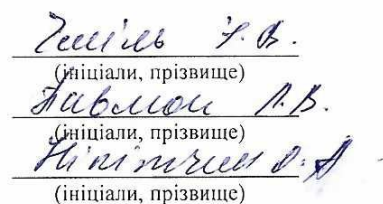 Чміль Н. В.
(ініціали, прізвище)
Павмон Л. В.
(ініціали, прізвище)
О. А
(ініціали, прізвище)